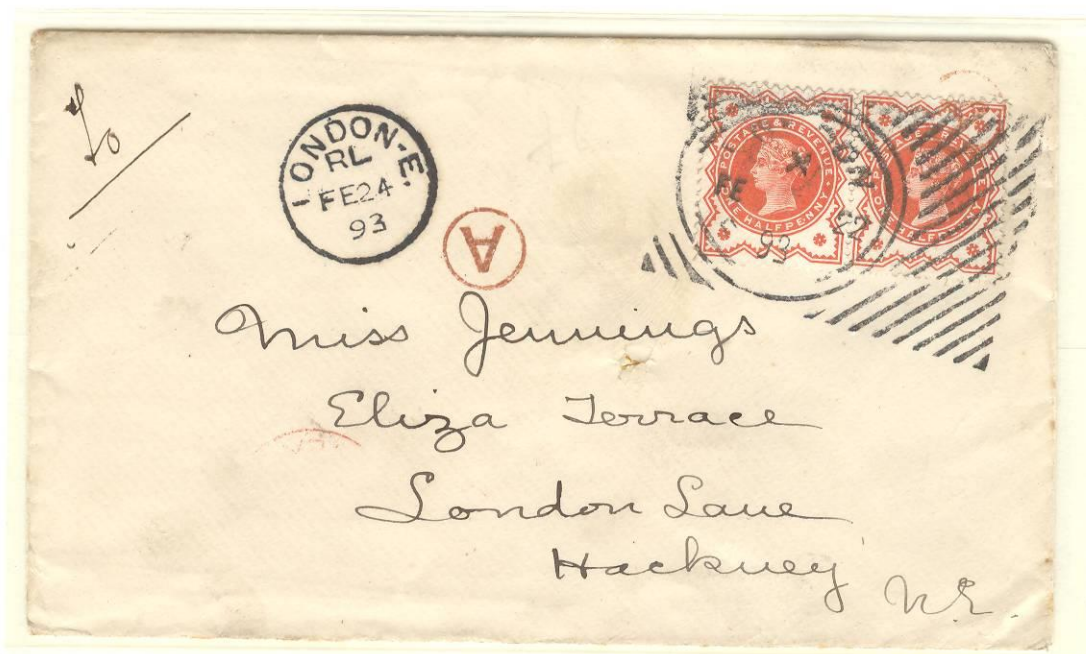 To
LONDON-E.
RL
FE24
93
A
POSTAGE & REVENUE
HALFPENNY
FE
93
HALFPENNY
Miss Jennings
Eliza Terrace
London Lane
Hackney
N.E